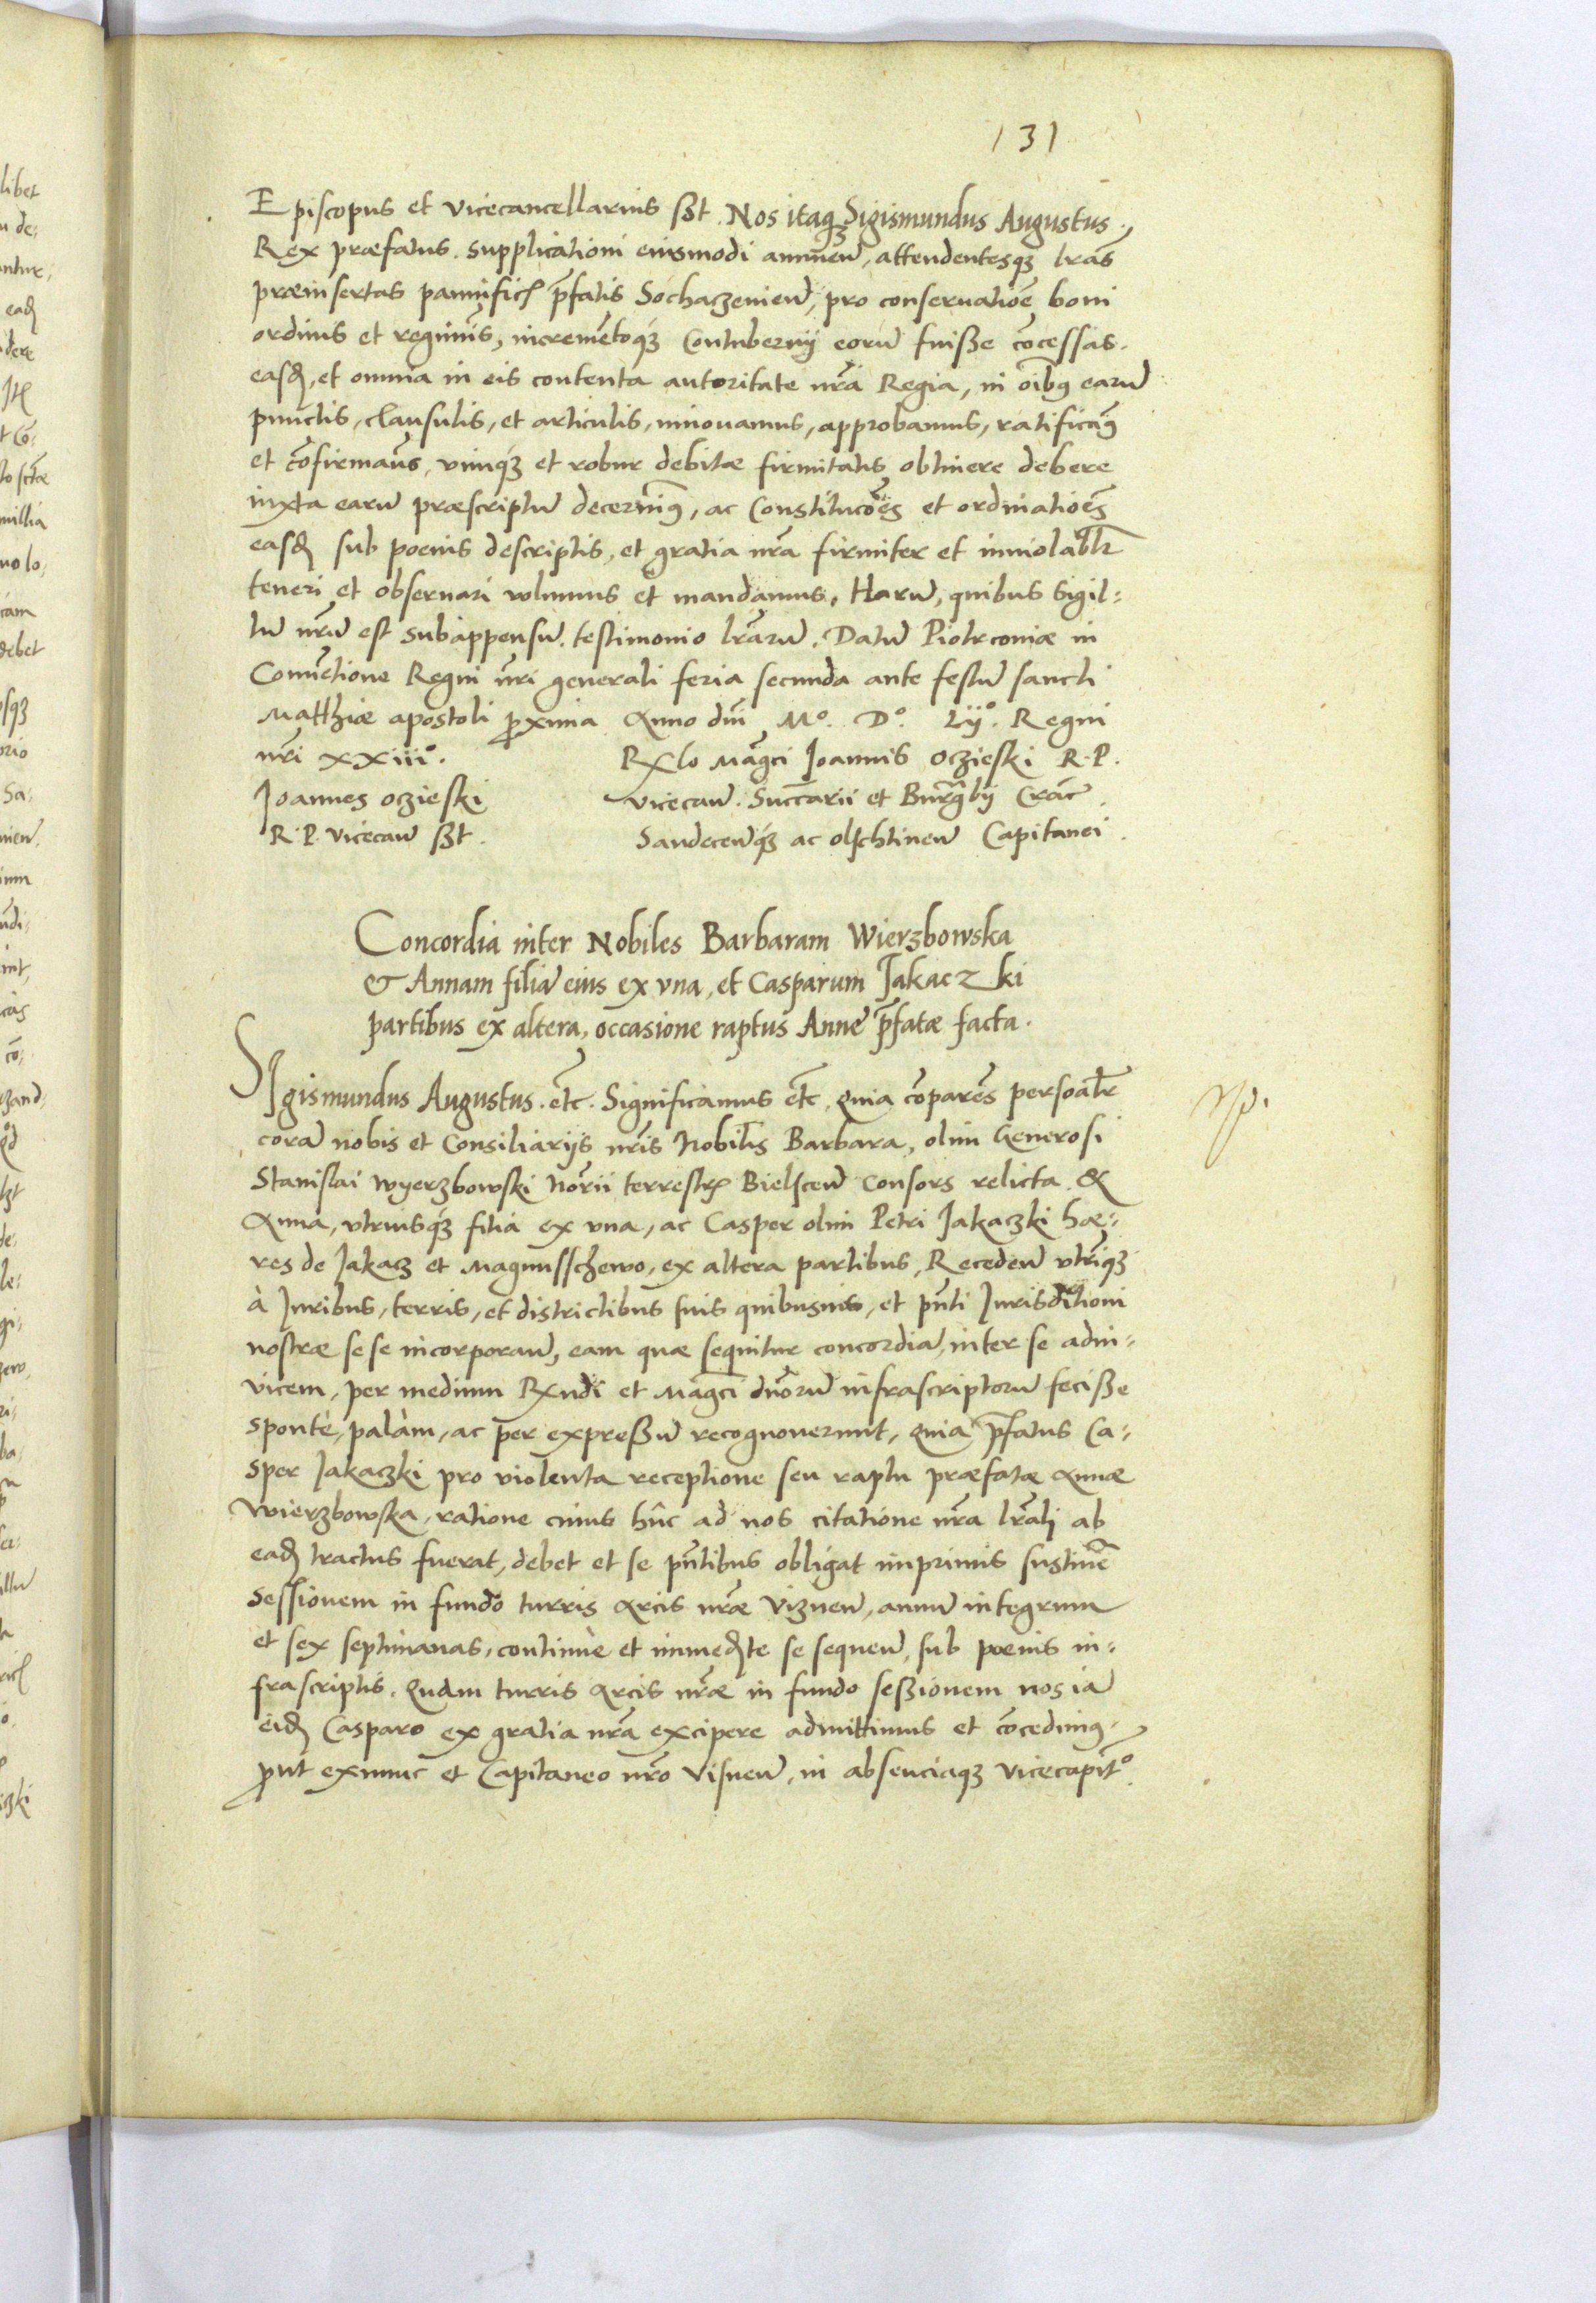 131
Episcopus et vicecancellarius sßt. Nos itaqꝫ Sigismundus Augustus.
Rex præfatus. supplicationi eiusmodi annueñ, attendentesqꝫ lras̃
præinsertas pannificꝭ p̃fatis Sochaczenieñ, pro conseruatiõe boni
ordinis et regiminis, incremẽtoqꝫ Contubernij eorũ fuiße cõcessas.
easd, et omnia in eis contenta autoritate nrã Regia, in oĩbꝰ earũ
punctis, clausulis, et articulis, innouamus, approbamus, ratificamꝰ
et cõfirmamꝰ, vimqꝫ et robur debitæ firmitatis obtinere debere
iuxta earũ præscriptũ decernimꝰ, ac Constitucões et ordinatiões
easd sub poenis descriptis, et gratia nrã firmiter et inuiolablr̃
teneri et obseruari volumus et mandamus, Harũ, quibus Sigil=
lũ nrũ est subappensũ. testimonio lrãrũ. Datũ Piotrconiæ in
Conuẽtione Regni nrĩ generali feria secunda ante festũ sancti
Matthiæ apostoli p̃xima Anno dnĩ Mº. Dº. Lijº. Regni
nrĩ xxiiiº. Rlo Magc̃i Joannis oczieski R. P.
vicecañ. Succarii et Burgrabij Crac̃.
Joannes oczieski
R. P. vicecañ sßt.
Sandeceñqꝫ ac olschtineñ Capitanei.
Concordia inter Nobiles Barbaram Wierzbowska
& Annam filiã eius ex vna, et Casparum Jakaczki
partibus ex altera, occasione raptus Anne p̃fatæ facta.
SJgismundus Augustus. etc̃. Significamus etc̃. Quia cõpareñs persoalr̃
corã nobis et Consiliarijs nrĩs Nobilis Barbara, olim Generosi
Stanislai Wyerzbowski Norĩi terrestrꝭ Bielsceñ Consors relicta &
Anna, vtriusqꝫ filia ex vna, ac Casper olim Petri Jakaczki hæ=
res de Jakacz et Magnusschewo, ex altera partibus, Recedeñ vtrĩqꝫ
à Juribus, terris, et districtibus suis quibusuis, et pñti Jurisdictioni
nostræ se se incorporañ, eam quæ sequitur concordiã, inter se adin=
vicem, per medium Rndi et Magc̃i dñorũ infrascriptorũ feciße
spontè, palàm, ac per expreßũ recognouerunt, Quia p̃fatus Ca=
sper Jakaczki pro violenta receptione seu raptu præfatæ Annæ
Wierzbowska, ratione cuius hũc ad nos citatione nrã lrãli ab
ead tractus fuerat, debet et se pñtibus obligat imprimis sustinẽ
sessionem in fundo turris Arcis nræ Vizneñ, annũ integrum
et sex septimanas, continuè et immedte se sequeñ, sub poenis in=
frascriptis. Quam turris Arcis nræ in fundo seßionem nos iã
eid Casparo ex gratia nrã excipere admittimus et cõcedimꝰ,
p̃ut exnunc et Capitaneo nrõ Visneñ, in absenciaqꝫ Vicecapitº.